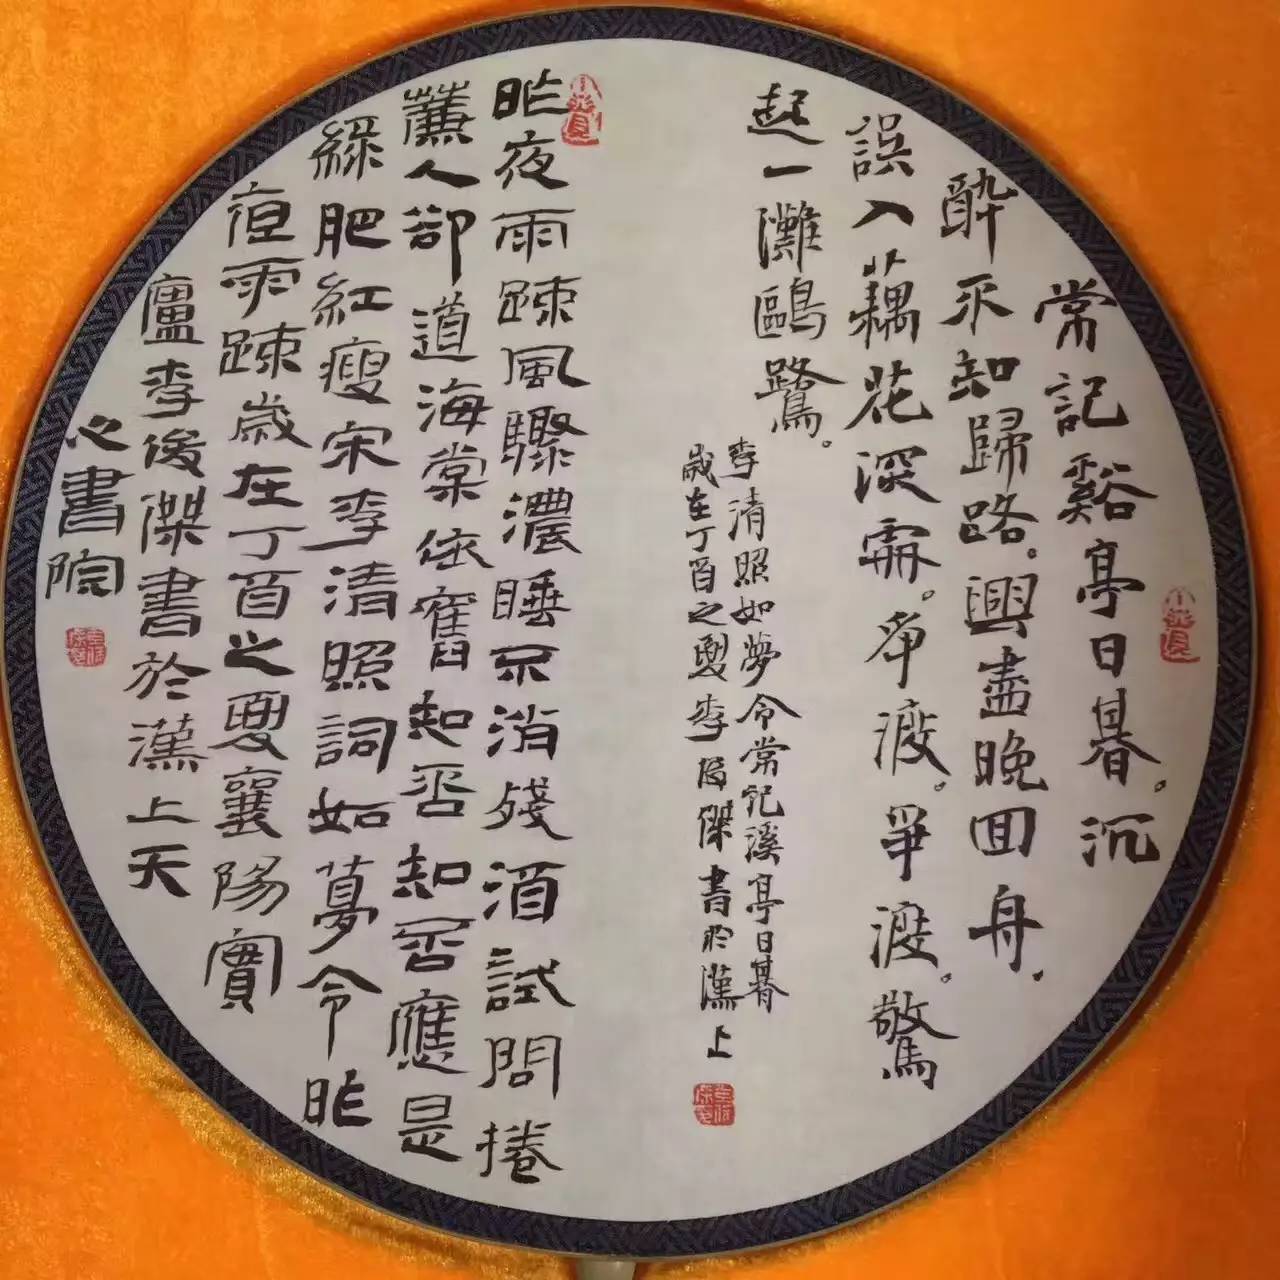 常記谿亭日暮。沉
醉不知歸路。興盡晚回舟.
誤入藕花深處。爭渡。爭渡。驚
起一灘鷗鷺。
李清照如夢令常記溪亭日暮
歲在丁酉之夏李俊傑書於漢上
昨夜雨踈風驟濃睡不消殘酒試問捲
簾人卻道海棠依舊知否知否應是
綠肥紅瘦宋李清照詞如夢令昨
夜雨踈歲在丁酉之夏襄陽實
廬李俊傑書於漢上天
心書院